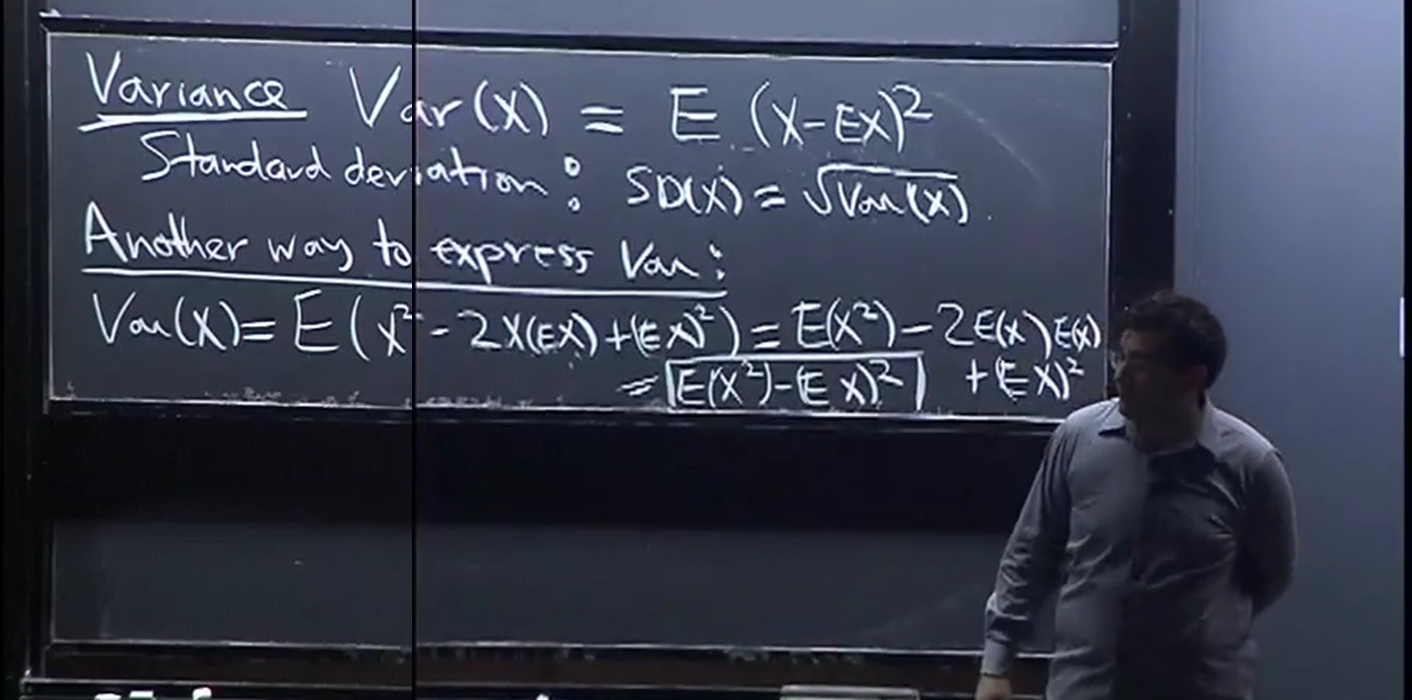 Variance Var(X) = E (X-EX)²
Standard deviation: SD(X) = √Var(X).
Another way to express Var:
Var(X) = E(X² - 2X(EX) + (EX)²) = E(X²) - 2E(X)E(X)
= E(X²)-(EX)² + (EX)²